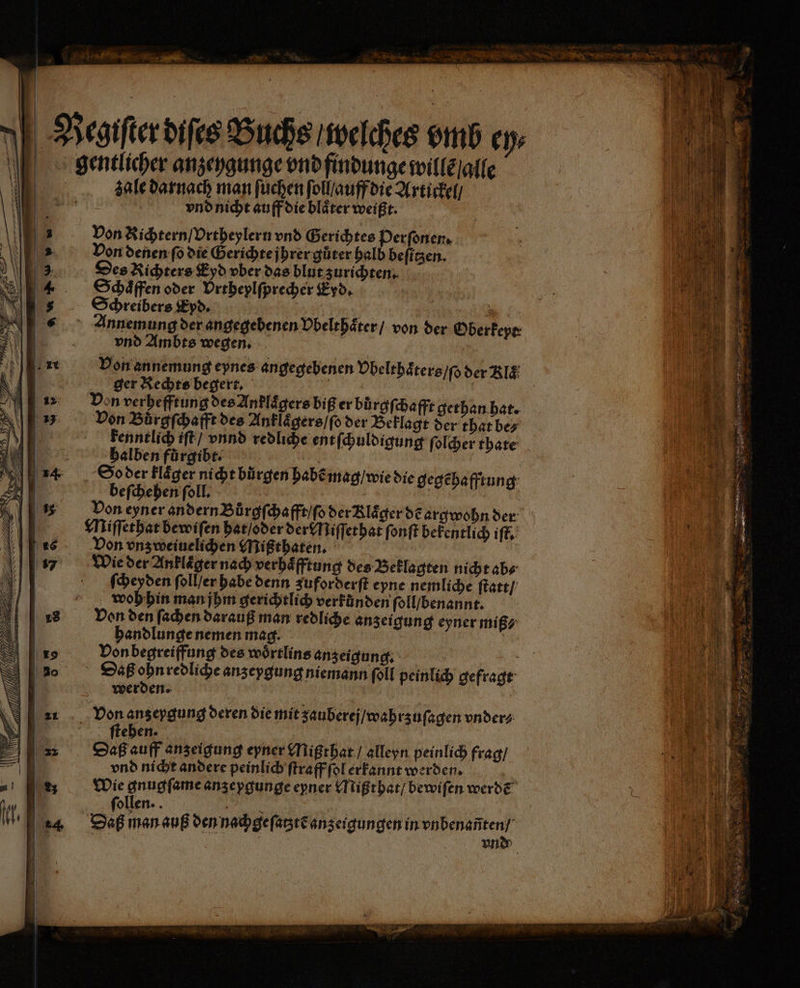 Regiſter diſes Buchs / welches vmb ey⸗
gentlicher anzeygunge vnd findunge willē / alle
zale darnach man ſuchen ſoll / auff die Artickel /
vnd nicht auff die blåter weißt.
1 Von Richtern / Vrtheylern vnd Gerichtes Perſonen.
2 Von denen ſo die Gerichte jhrer gůter halb beſitzen.
3 Des Richters Eyd vber das blut zurichten.
4 Schåffen oder Vrtheylſprecher Eyd.
5 Schreibers Eyd.
6 Annemung der angegebenen Vbelthåter / von der Oberkeyt
vnd Ambts wegen.
11 Von annemung eynes angegebenen Vbelthåters / ſo der Klå
ger Rechts begert.
12 Von verhefftung des Anklågers biß er bůrgſchafft gethan hat.
13 Von Bůrgſchafft des Anklågers / ſo der Beklagt der that be⸗
kenntlich iſt / vnnd redliche entſchuldigung ſolcher thate
halben fůrgibt.
14 So der klåger nicht bůrgen habē mag / wie die gegēhafftung
beſchehen ſoll.
15 Von eyner andern Bůrgſchafft / ſo der Klåger dē argwohn der
Miſſethat bewiſen hat / oder der Miſſethat ſonſt bekentlich iſt.
16 Von vnzweiuelichen Mißthaten.
17 Wie der Anklåger nach verhåfftung des Beklagten nicht ab⸗
ſcheyden ſoll / er habe denn zuforderſt eyne nemliche ſtatt /
woh hin man jhm gerichtlich verkůnden ſoll / benannt.
18 Von den ſachen darauß man redliche anzeigung eyner miß⸗
handlunge nemen mag.
19 Von begreiffung des wőrtlins anzeigung.
20 Daß ohn redliche anzeygung niemann ſoll peinlich gefragt
werden.
21 Von anzeygung deren die mit zauberej / wahrzuſagen vnder⸗
ſtehen.
22 Daß auff anzeigung eyner Mißthat / alleyn peinlich frag /
vnd nicht andere peinlich ſtraff ſol erkannt werden.
23 Wie gnugſame anzeygunge eyner Mißthat / bewiſen werdē
ſollen.
24 Daß man auß den nachgeſatztē anzeigungen in vnbenañten /
vnd